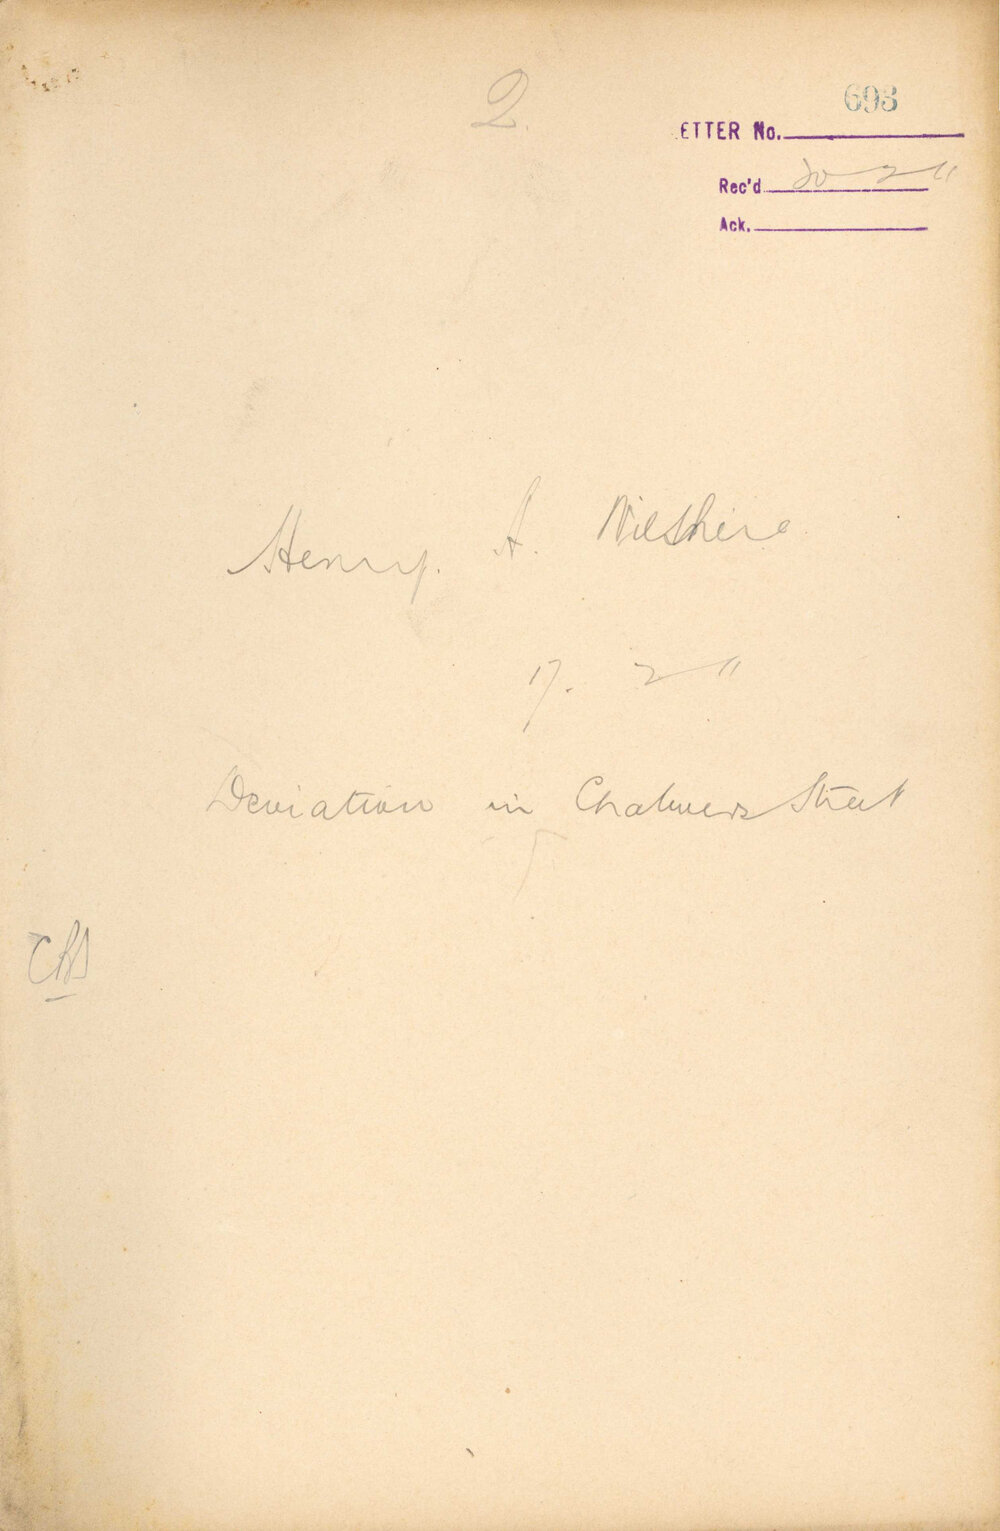 2
693
ETTER No.
Rec'd 20 2 11
Ack.
Henry. A. Wilshire
17. 2 11
Deviation in Chalmers Street